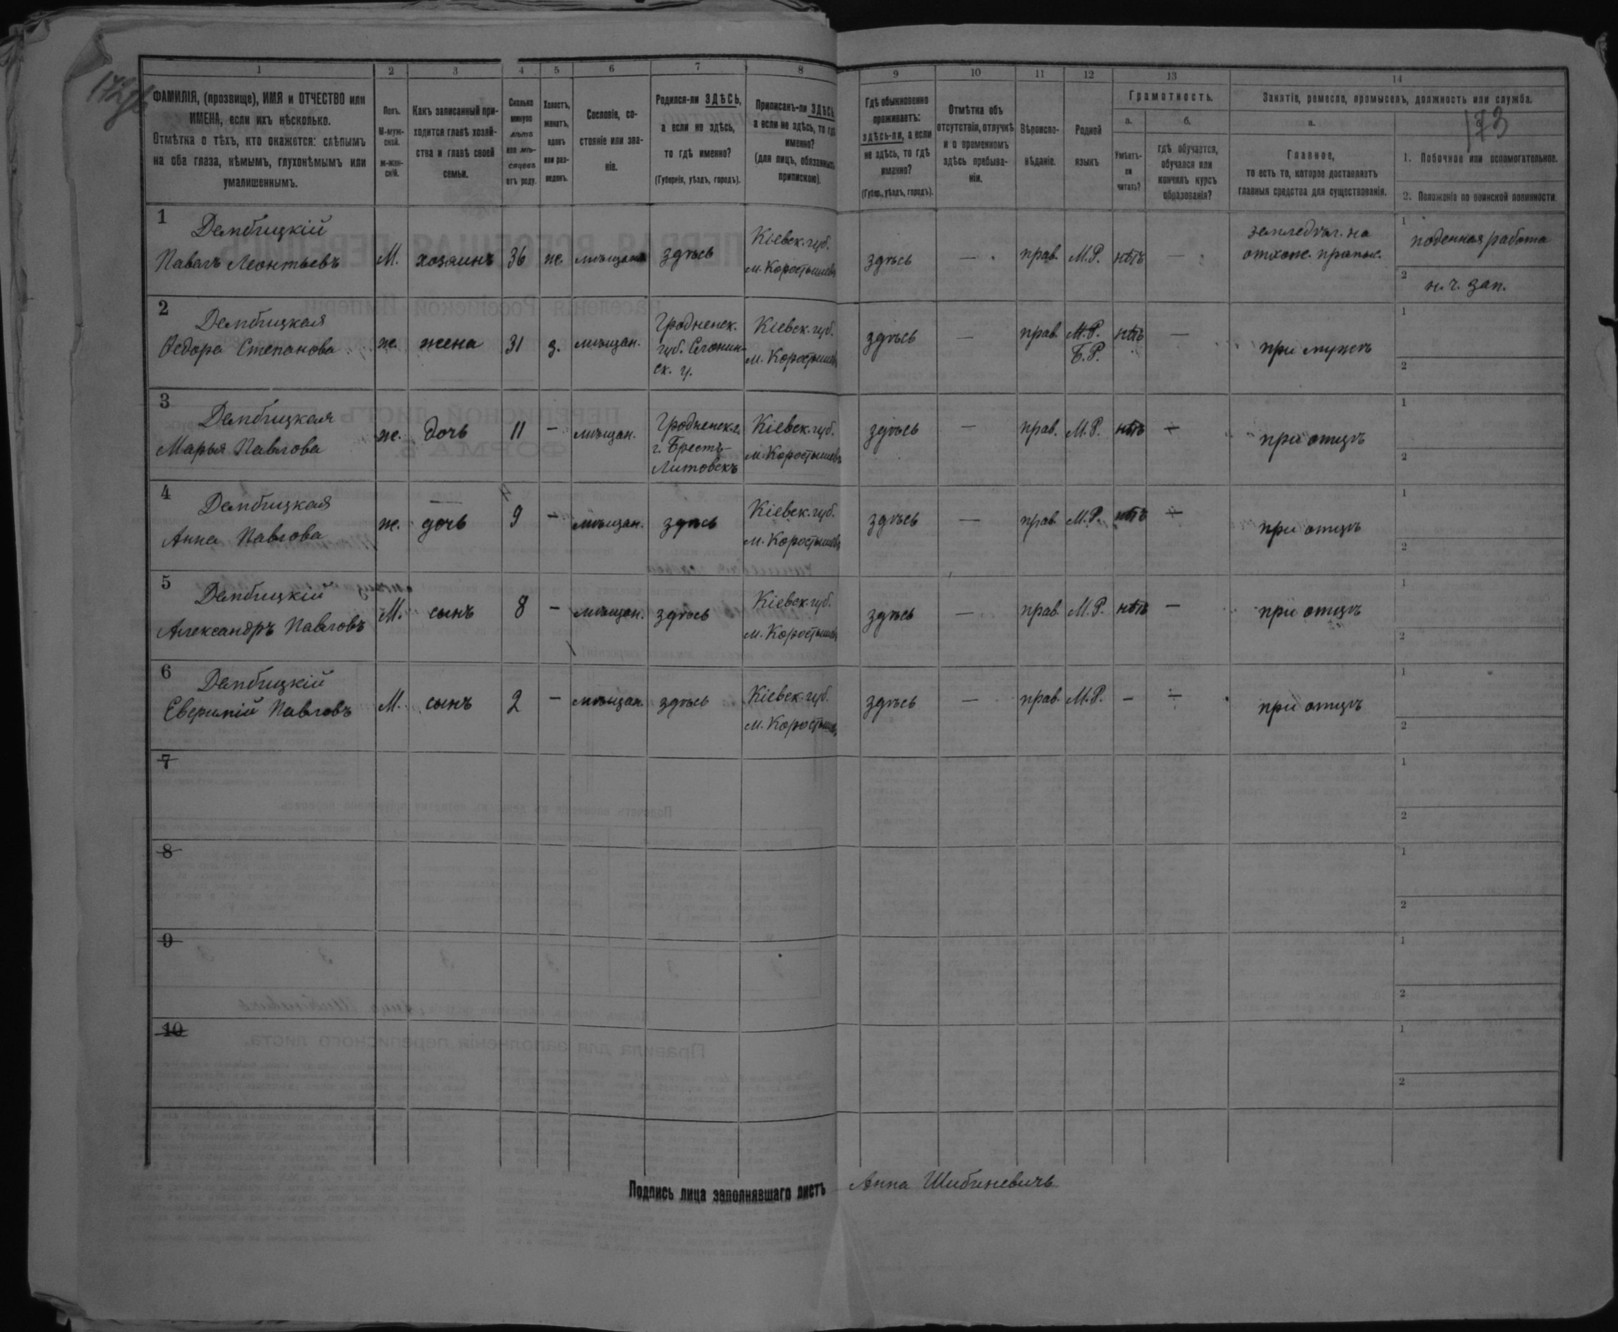 173
1 2 3 4 5 6 7 8 9 10 11 12 13 14
ФАМИЛІЯ, (прозвище), ИМЯ и ОТЧЕСТВО или
ИМЕНА, если ихъ нѣсколько.
Отмѣтка о тѣхъ, кто окажется: слѣпымъ
на оба глаза, нѣмымъ, глухонѣмымъ или
умалишеннымъ.
Полъ.
М-муж-
ской.
Ж-жен-
скій.
Какъ записанный при-
ходится главѣ хозяй-
ства и главѣ своей
семьи.
Сколько
минуло
лѣтъ
или мѣ-
сяцевъ
отъ роду.
Холостъ,
женатъ,
вдовъ
или раз-
веденъ.
Сословіе, со-
стояніе или зва-
ніе.
Родился-ли ЗДѢСЬ,
а если не здѣсь,
то гдѣ именно?
(Губернія, уѣздъ, городъ).
Приписанъ-ли ЗДѢСЬ,
а если не здѣсь, то гдѣ
именно?
(для лицъ, обязанныхъ
припискою).
Гдѣ обыкновенно
проживаетъ:
здѣсь-ли, а если
не здѣсь, то гдѣ
именно?
(Губер., уѣздъ, городъ).
Отмѣтка объ
отсутствіи, отлучкѣ
и о временномъ
здѣсь пребыва-
ніи.
Вѣроиспо-
вѣданіе.
Родной
языкъ.
Грамотность.
а.
Умѣетъ-
ли
читать?
б.
гдѣ обучается,
обучался или
кончилъ курсъ
образованія?
Занятіе, ремесло, промыселъ, должность или служба.
а.
Главное,
то есть то, которое доставляетъ
главныя средства для существованія.
1. Побочное или вспомогательное.
2. Положеніе по воинской повинности.
1 Дембицкій
Павелъ Леонтьевъ М. хозяинъ 36 ж. мѣщан. здѣсь Кіевск. губ.
м. Коростышевъ здѣсь — прав. М.Р. нѣтъ —
земледѣл. на
отхож. промыс.
1 поденная работа
2 н. ч. зап.
2 Дембицкая
Ѳедора Степанова ж. жена 31 з. мѣщан. Гродненск.
губ. Слоним-
ск. у.
Кіевск. губ.
м. Коростышевъ здѣсь прав. М.Р.
Б.Р. нѣтъ — при мужѣ
1
2
3 Дембицкая
Марья Павлова ж. дочь 11 — мѣщан. Гродненск. г.
г. Брестъ-
Литовскъ
Кіевск. губ.
м. Коростышевъ здѣсь — прав. М.Р. нѣтъ — при отцѣ
1
2
4 Дембицкая
Анна Павлова ж. дочь 9 — мѣщан. здѣсь Кіевск. губ.
м. Коростышевъ здѣсь — прав. М.Р. нѣтъ — при отцѣ
1
2
5 Дембицкій
Александръ Павловъ М. сынъ 8 — мѣщан. здѣсь Кіевск. губ.
м. Коростышевъ здѣсь — прав. М.Р. нѣтъ — при отцѣ
1
2
6 Дембицкій
Евфимій Павловъ М. сынъ 2 — мѣщан. здѣсь Кіевск. губ.
м. Коростышевъ здѣсь — прав. М.Р. — — при отцѣ
1
2
7
1
2
8
1
2
9
1
2
10
1
2
Подпись лица заполнявшаго листъ Анна Шибиневичъ